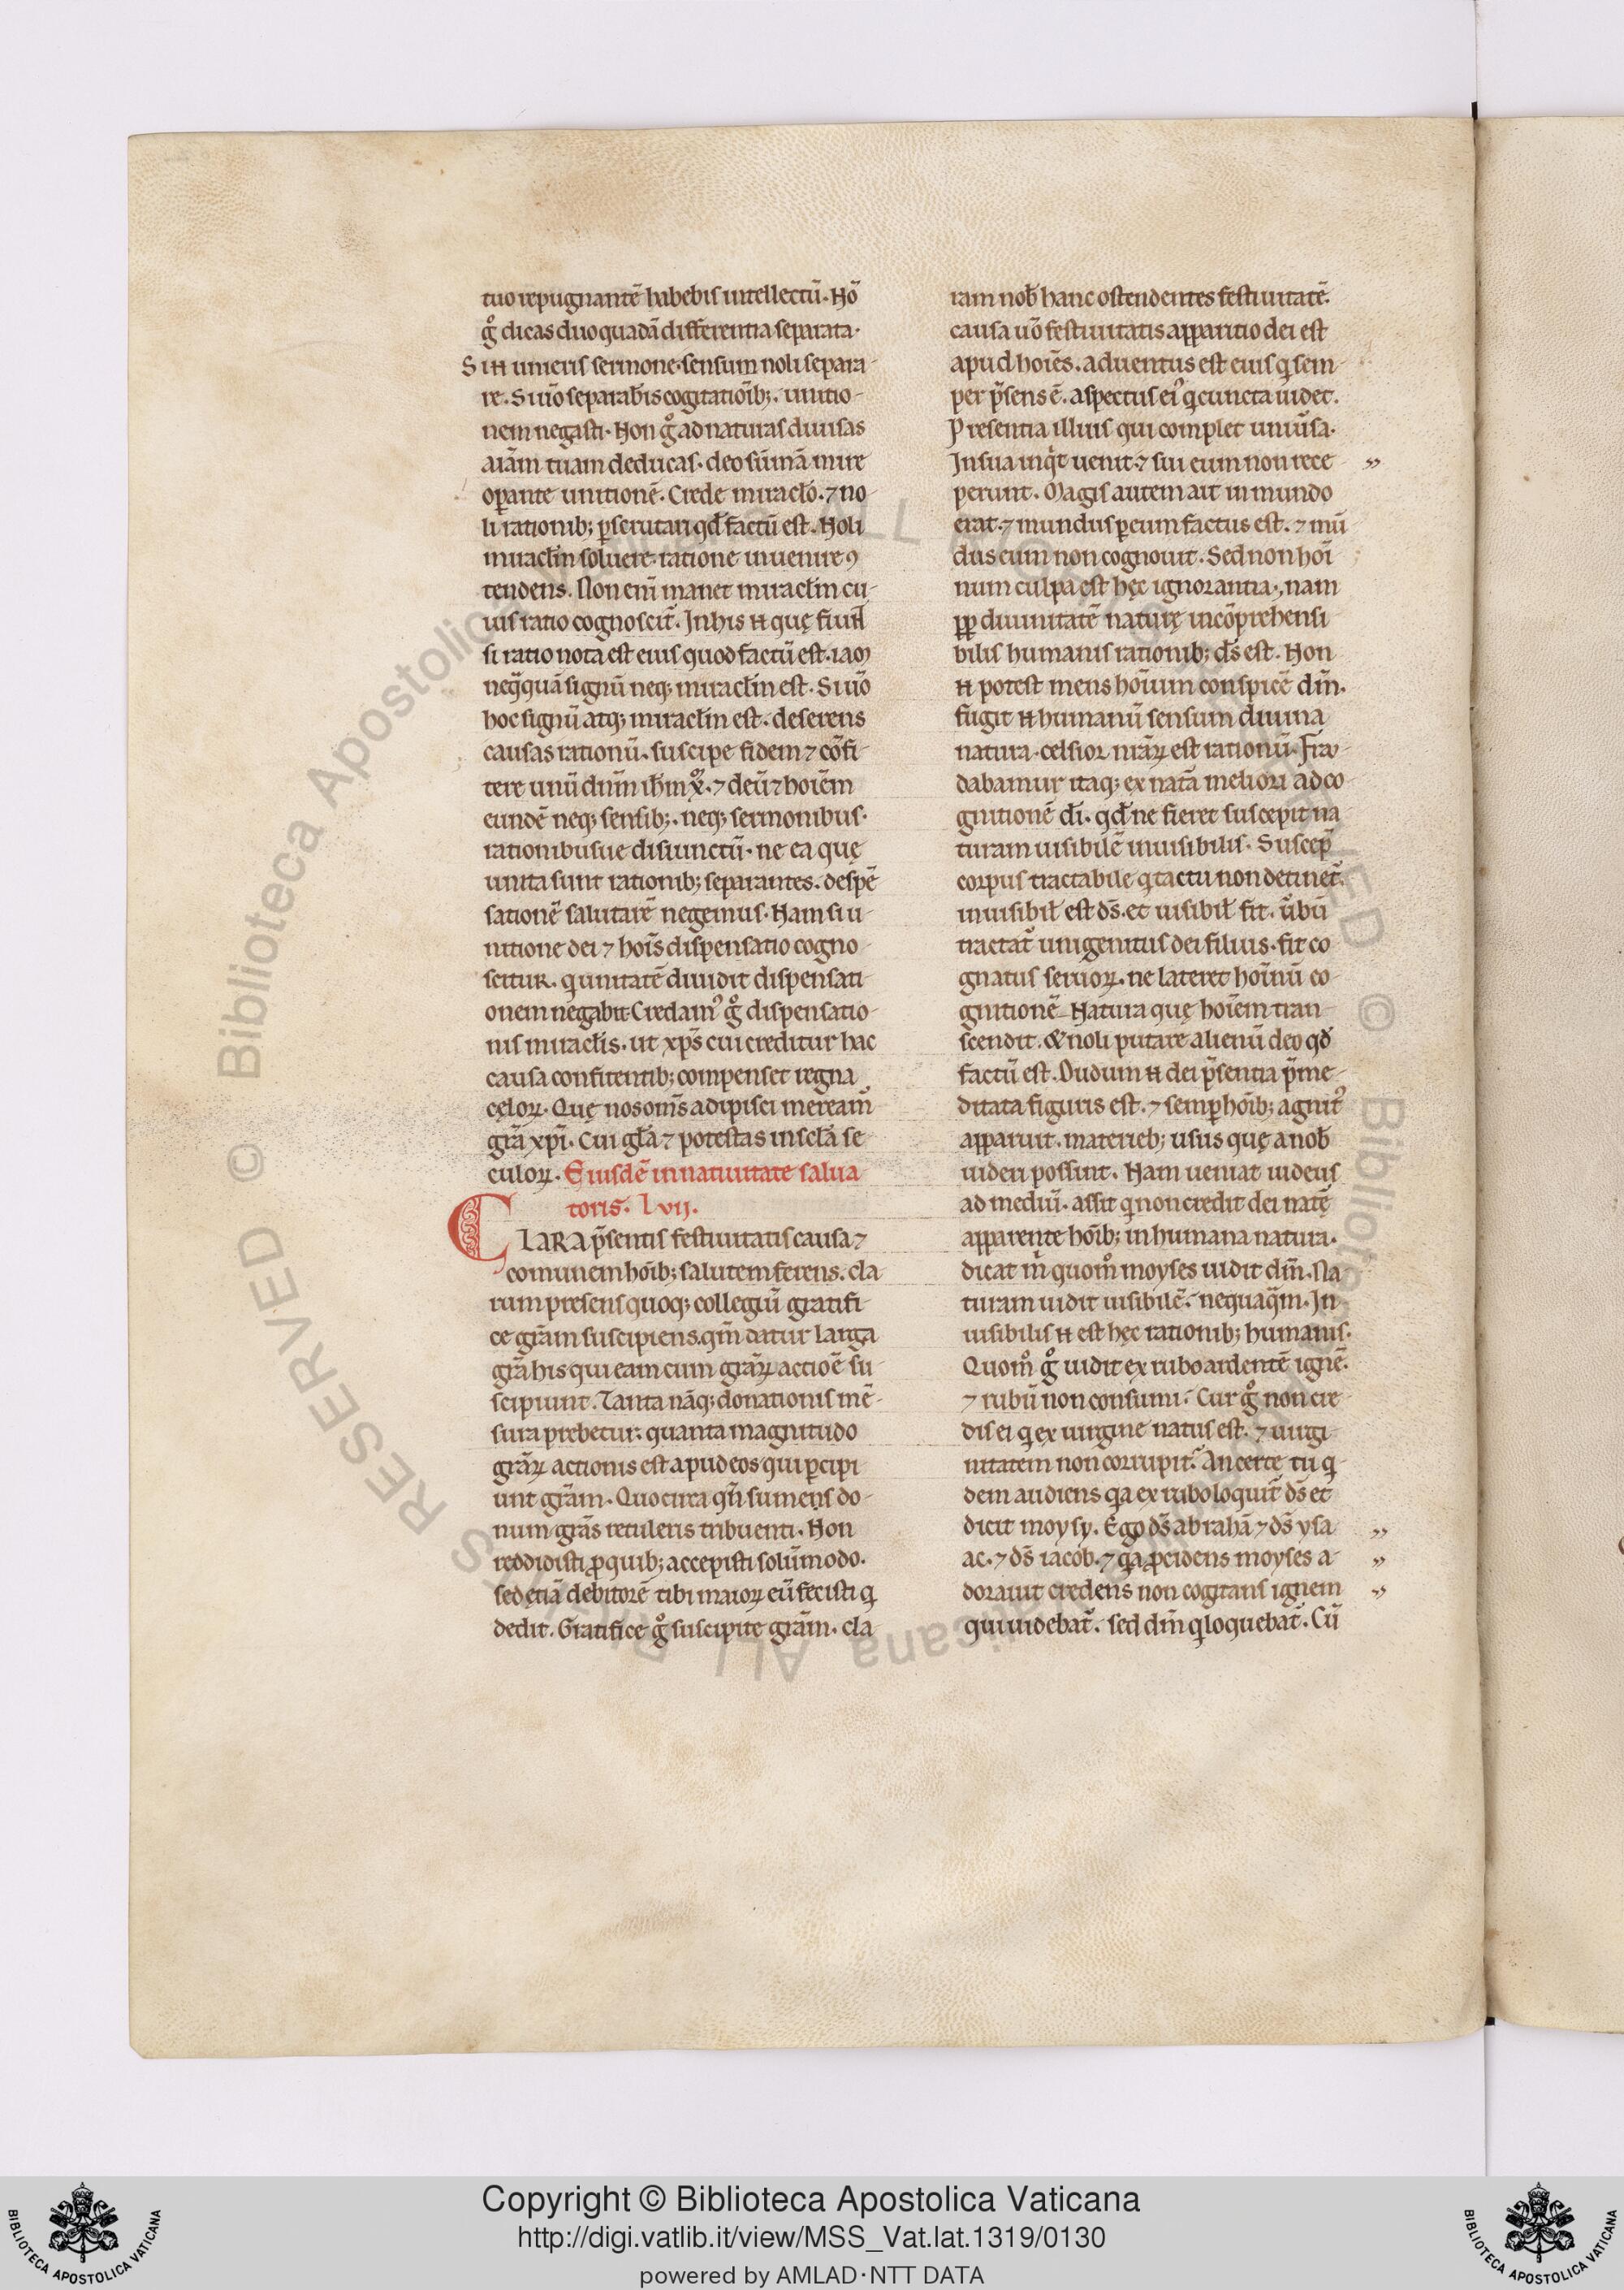 tuo repugnantē habebis intellectū. Nō
gͦ dicas duo quadā differentia separata.
Si n̄ unieris sermone. sensum noli separa-
re. Si uō separabis cogitatiōib;. unitio-
nem negasti. Non gͦ ad naturas diuisas
aīam tuam deducas. deo sūmā mire
opante unitionē. Crede miraclō. ⁊ no-
li rationib; pscrutari qd̄ factū est. Noli
miraclm̄ soluere. ratione inuenire ꝯ
tendens. Non enī manet miraclm̄ cu-
ius ratio cognoscit̄. In his n̄ quę fiun̄t
si ratio nota est eius quod factū est. iam
neq̄quā signū neq; miraclm̄ est. Si uō
hoc signū atq; miraclm̄ est. deserens
causas rationū. suscipe fidem ⁊ cōfi-
tere unū dn̄m ihm̄ xp̄. ⁊ deū ⁊ hoīem
eundē neq; sensib;. neq; sermonibus.
rationibusue disiunctū. ne ea quę
unita sunt rationib; separantes. despē
sationē salutarē negemus. Nam si u-
nitione dei ⁊ hoīs dispensatio cogno-
scitur. q unitatē diuidit dispensati-
onem negabit. Credam᾽ gͦ dispensatio-
nis miracl̄is. ut xp̄s cui creditur hac
causa confitentib; compenset regna
cęloꝝ. Quę nos om̄s adipisci meream̄
gr̄a xpī. Cui gl̄a ⁊ potestas in scl̄a se-
culoꝝ. Eiusdē in natiuitate salua
toris. lvij.
CLARA p̄sentis festiuitatis causa ⁊
comunem hoīb; salutem ferens. cla
rum presens quoq; collegiū gratifi-
ce gr̄am suscipiens. qm̄ datur larga
gr̄a his qui eam cum gr̄aꝝ actioē su-
scipiunt. Tanta nāq; donationis mē-
sura prebetur. quanta magnitudo
gr̄aꝝ actionis est apud eos qui pcipi
unt gr̄am. Quocirca qn̄ sumens do-
num gr̄as retuleris tribuenti. Non
reddidisti ꝓ quib; accepisti solūmodo.
sed etiā debitorē tibi maioꝝ eū fecisti q
dedit. Gratifice gͦ suscipite gr̄am. cla
ram nob̄ hanc ostendentes festiuitatē.
causa uō festiuitatis apparitio dei est
apud hoīes. aduentus est eius q sem-
per p̄sens ē. aspectus ei᾽ q cuncta uidet.
Presentia illius qui complet uniūsa.
In sua inqͥt uenit. ⁊ sui eum non rece-
perunt. Magis autem ait in mundo
erat. ⁊ mundus p eum factus est. ⁊ mū
dus eum non cognouit. Sed non hoī
num culpa est hęc ignorantia. nam
ꝓp diuinitatē naturę incōprehensi
bilis humanis rationib; ds̄ est. Non
n̄ potest mens hoīum conspicē dm̄.
fugit n̄ humanū sensum diuina
natura. celsior nr̄aꝝ est rationū. Frau-
dabamur itaq; ex nat̄a meliori ad co
gnitionē dī. qd̄ ne fieret suscepit na
turam uisibilē inuisibilis. Suscep̄
corpus tractabile q tactu non detinet̄.
inuisibil̄ est ds̄. et uisibil̄ fit. ūbū
tractat̄ unigenitus dei filius. fit co
gnatus seruoꝝ. ne lateret hoīnū co-
gnitionē. Natura quę hoīem tran-
scendit. & noli putare alienū deo qd̄
factū est. Dudum n̄ dei p̄sentia p̄me-
ditata figuris est. ⁊ semp hoīb; agnit᾽
apparuit. materieb; usus quę a nob̄
uideri possint. Nam ueniat uideus
ad mediū. assit q non credit dei natę
apparente hoīb; in humana natura.
dicat m̄ quomͦ moyses uidit dm̄. Na
turam uidit uisibilē. nequaq̄m. In-
uisibilis n̄ est hęc rationib; humanis.
Quomͦ gͦ uidit ex rubo ardentē ignē.
⁊ rubū non consumi. Cur gͦ non cre-
dis ei q ex uirgine natus est. ⁊ uirgi-
nitatem non corrupit. An certe tu q-
dem audiens qa ex rubo loquit̄ ds̄ et
dicit moysy. Ego ds̄ abrahā ⁊ ds̄ ysa
ac. ⁊ ds̄ iacob. ⁊ qa ꝓcidens moyses a-
dorauit credens non cogitans ignem
qui uidebat̄. sed dm̄ q loquebat̄. Cū
Biblioteca Apostolica Vaticana ALL RIGHTS RESERVED ©
Copyright © Biblioteca Apostolica Vaticana
http://digi.vatlib.it/view/MSS_Vat.lat.1319/0130
powered by AMLAD·NTT DATA
BIBLIOTECA APOSTOLICA VATICANA
BIBLIOTECA APOSTOLICA VATICANA